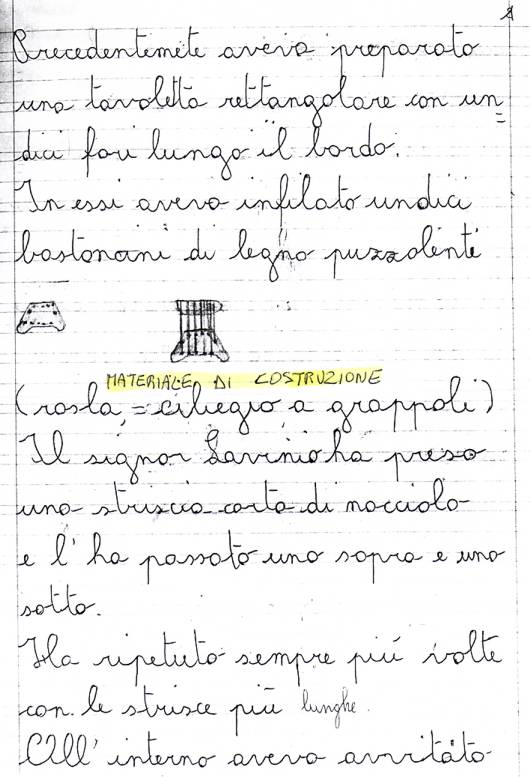 Precedentemete aveva preparato
una tavoletta rettangolare con un=
dici fori lungo il bordo.
In essi aveva infilato undici
bastoncini di legno puzzolente
MATERIALE DI COSTRUZIONE
(rosla = ciliegio a grappoli)
Il signor Savinio ha preso
una striscia corta di nocciolo
e l'ha passato uno sopra e uno
sotto.
Ha ripetuto sempre più volte
con le strisce più lunghe.
All'interno aveva avvitato